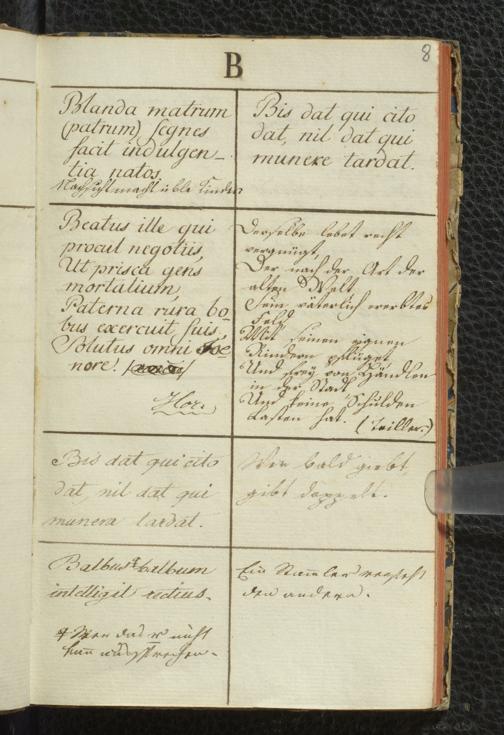 8
B
Blanda matrum
(patrum) segnes
facit indulgen-
tia natos.
Nachsicht macht üble Kinder
Bis dat qui cito
dat, nil dat qui
munere tardat.
Beatus ille qui
procul negotiis,
Ut prisca gens
mortalium,
Paterna rura bo-
bus exercuit suis,
Solutus omni foe-
nore!
Hor.
Derselbe lebet recht
vergnügt,
Der nach der Art der
alten Welt
Sein väterlich ererbtes
Feld
Mit seinen eignen
Rindern pflüget
Und frey von Händlen
in der Stadt
Und keine Schulden
Lasten hat. (Triller.)
Bis dat qui cito
dat, nil dat qui
munera tardat.
Wer bald giebt,
gibt doppelt.
Balbus balbum
intelligit rectius.
Wer das r nicht
kann aussprechen.
Ein Stammler versteht
den andern.